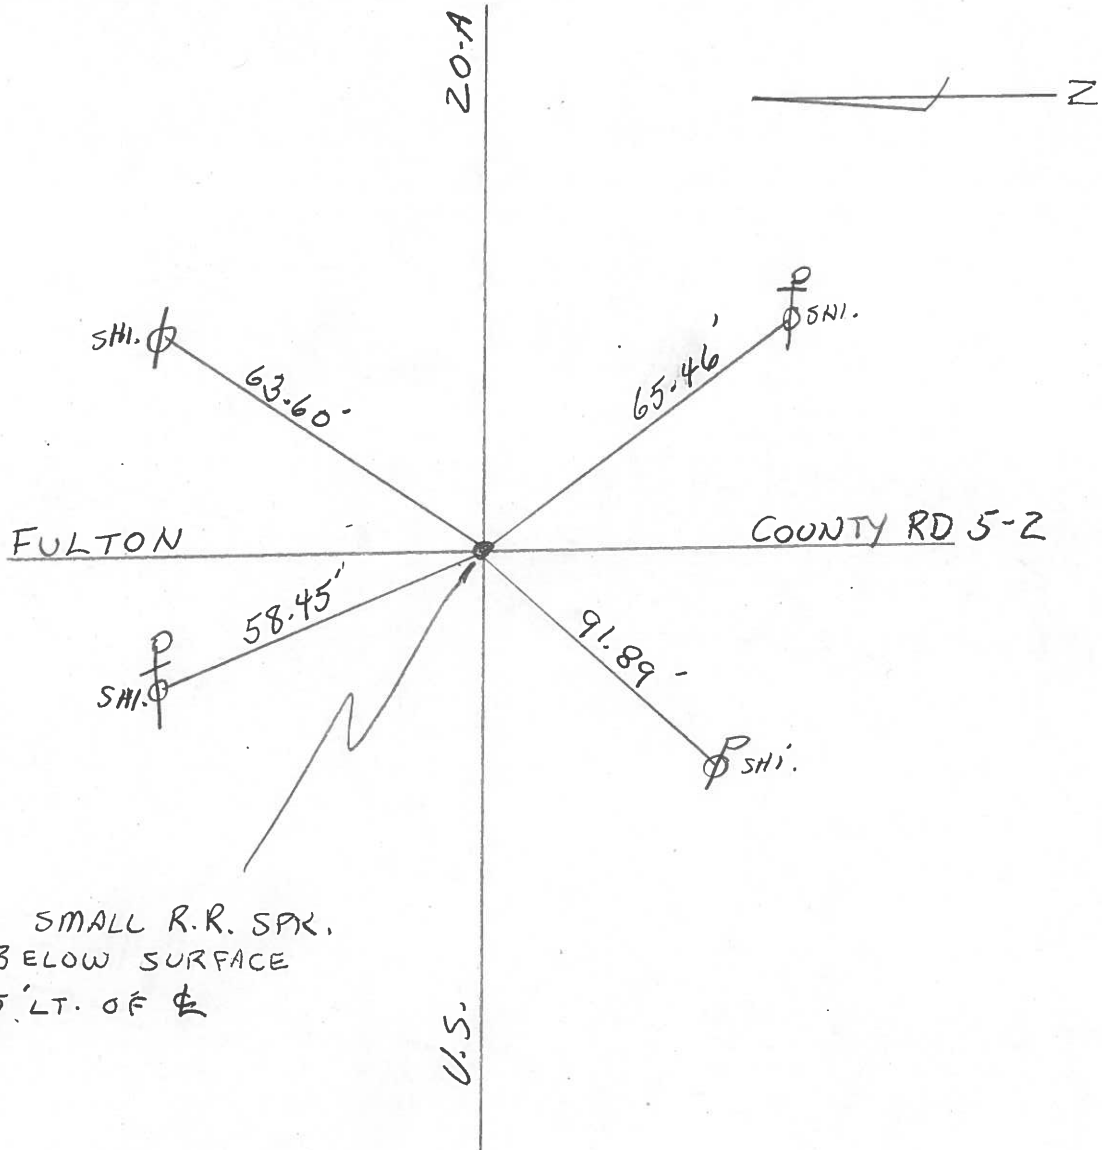 20-A
N
SHI.
SHI.
63.60'
65.46'
FULTON
COUNTY RD 5-2
58.45'
91.89'
SHI.
SHI.
SMALL R.R. SPK.
BELOW SURFACE
LT. OF ℄
U.S.